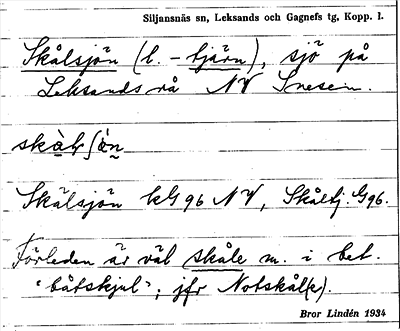 Siljansnäs sn, Leksands och Gagnefs tg, Kopp. l.
Skålsjön (l. -tjärn), sjö på
Leksands rå NV Snesen.
skàlʃön
Skålsjön kG96 NV, Skåltj. G96.
Förleden är väl skåle m. i bet.
"båtskjul"; jfr Notskål(e).
Bror Lindén 1934